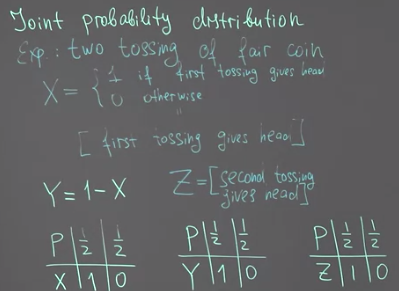 Joint probability distribution
Exp.: two tossing of fair coin
X = { 1 if first tossing gives head
0 otherwise
"
[ first tossing gives head ]
Y = 1 - X
Z = [ second tossing
gives head ]
P | 1/2 | 1/2
X | 1 | 0
P | 1/2 | 1/2
Y | 1 | 0
P | 1/2 | 1/2
Z | 1 | 0